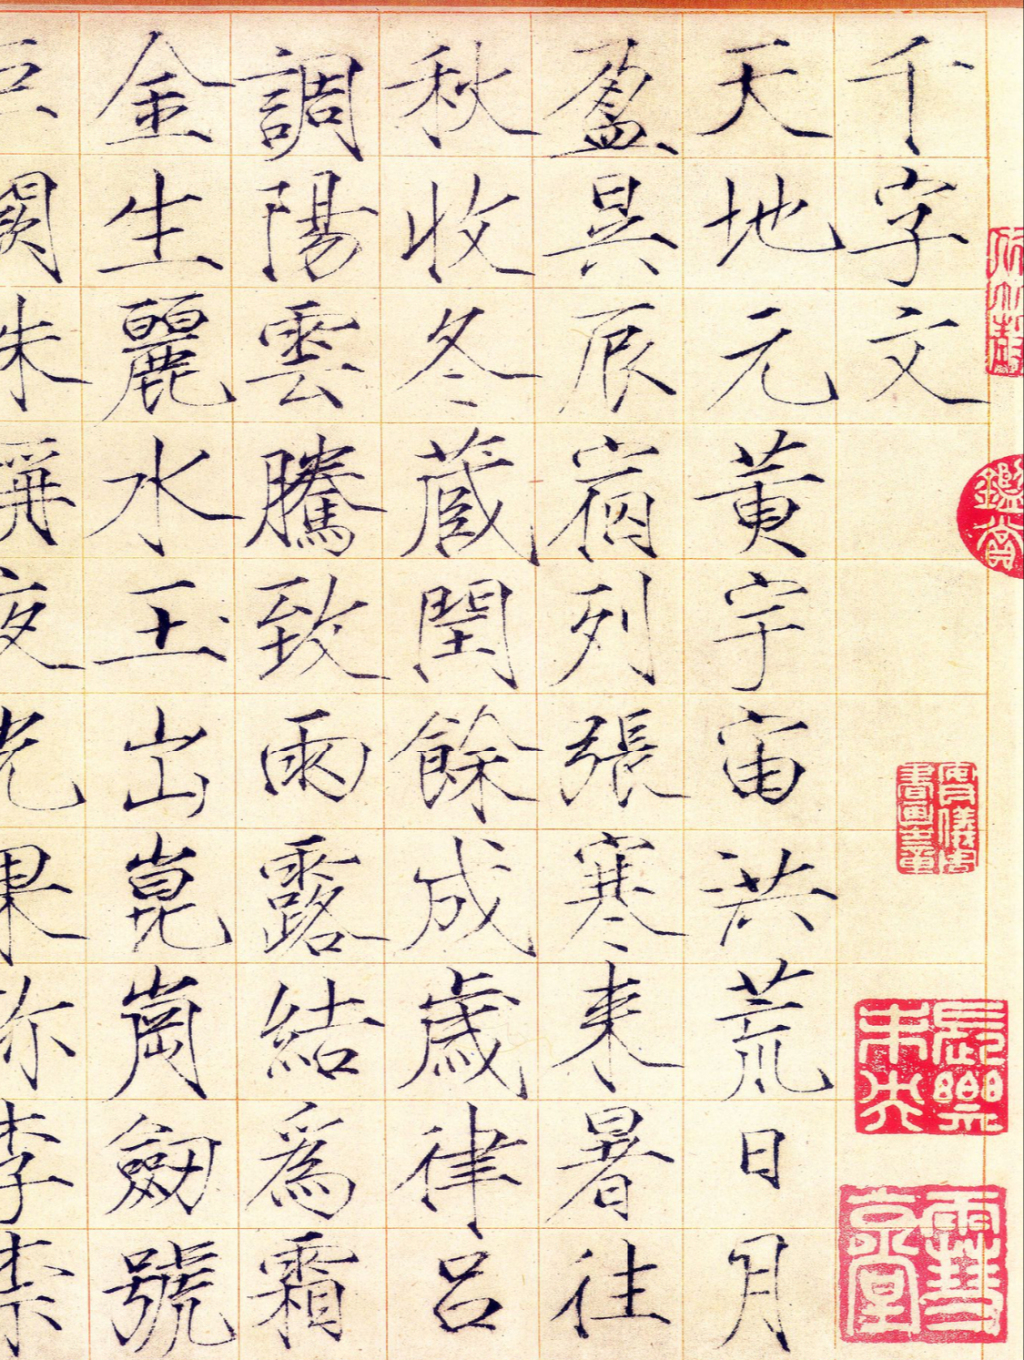 千字文
天地元黃宇宙洪荒日月
盈昃辰宿列張寒来暑往
秋收冬蔵閏餘成歲律呂
調陽雲騰致雨露結爲霜
金生麗水玉出崑崗劒號
巨闕珠稱夜光果珍李柰
鑑賞
長樂未央